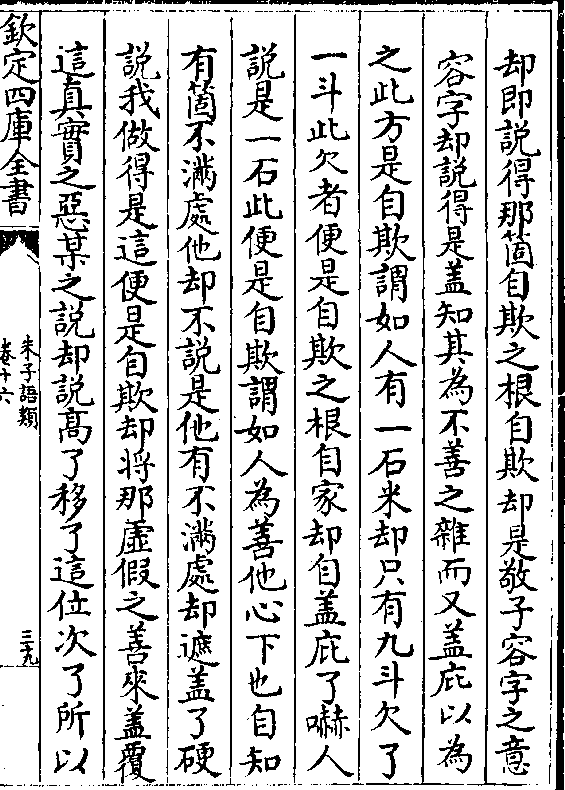 却即說得那箇自欺之根自欺却是敬子容字之意
容字却說得是蓋知其為不善之雜而又蓋庇以為
之此方是自欺謂如人有一石米却只有九斗欠了
一斗此欠者便是自欺之根自家却自蓋庇了嚇人
說是一石此便是自欺謂如人為善他心下也自知
有箇不滿處他却不說是他有不滿處却遮蓋了硬
說我做得是這便是自欺却將那虛假之善來蓋覆
這真實之惡某之說却說高了移了這位次了所以
欽定四庫全書
朱子語類
卷十六
三十九